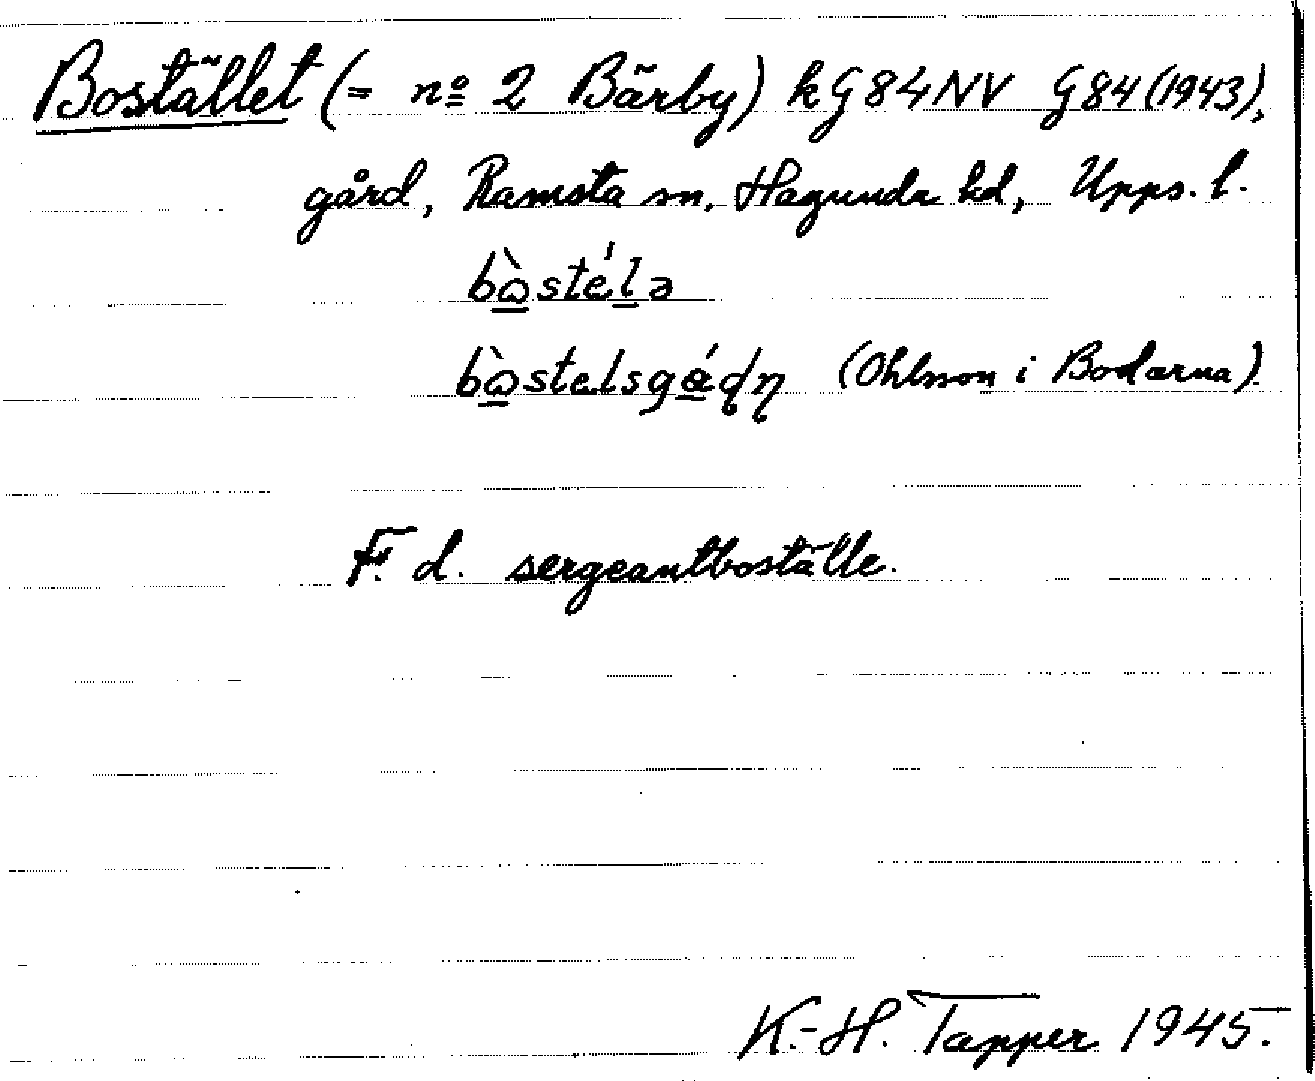 Bostället (= nº 2 Bärby) k G 84 NV G 84 (1943),
gård, Ramsta sn, Hagunda hd, Upps. l.
bɷ̀stélə
bɷ̀stelsgáɖɳ (Ohlsson i Bodarna).
F. d. sergeantboställe.
K.-H. Tapper 1945.